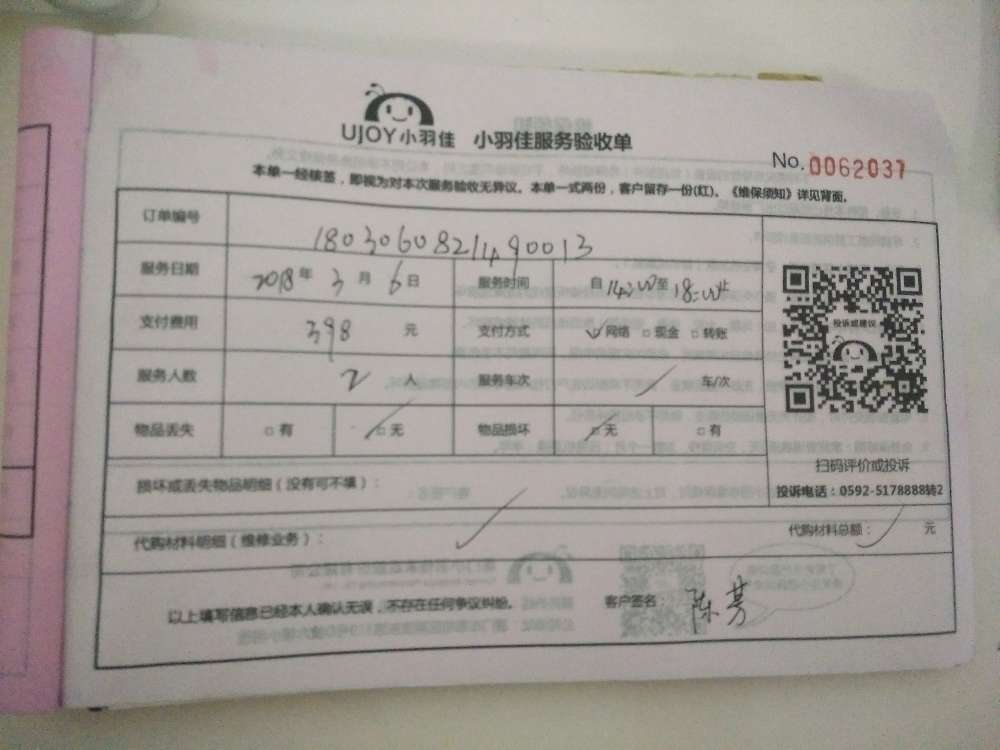 UJOY小羽佳 小羽佳服务验收单
No.0062037
本单一经核签，即视为对本次服务验收无异议。本单一式两份，客户留存一份(红)。《维保须知》详见背面。
订单编号 1803060821490013
服务日期 2018年3月6日 服务时间 自14:00至18:00止
支付费用 398 元 支付方式 ☑网络 □现金 □转账
投诉或建议
服务人数 2 人 服务车次 / 车/次
物品丢失 □有 ☑无 物品损坏 ☑无 □有
扫码评价或投诉
损坏或丢失物品明细（没有可不填）：
投诉电话：0592-5178888转2
代购材料明细（维修业务）： 代购材料总额： / 元
以上填写信息已经本人确认无误，不存在任何争议纠纷。 客户签名 陈芳